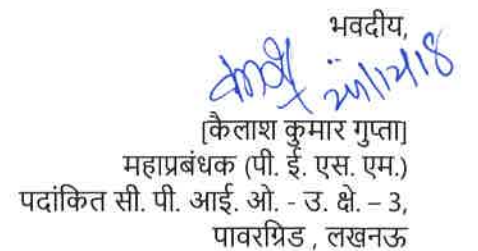 भवदीय,
[कैलाश कुमार गुप्ता]
महाप्रबंधक (पी. ई. एस. एम.)
पदांकित सी. पी. आई. ओ. - उ. क्षे. – 3,
पावरग्रिड , लखनऊ